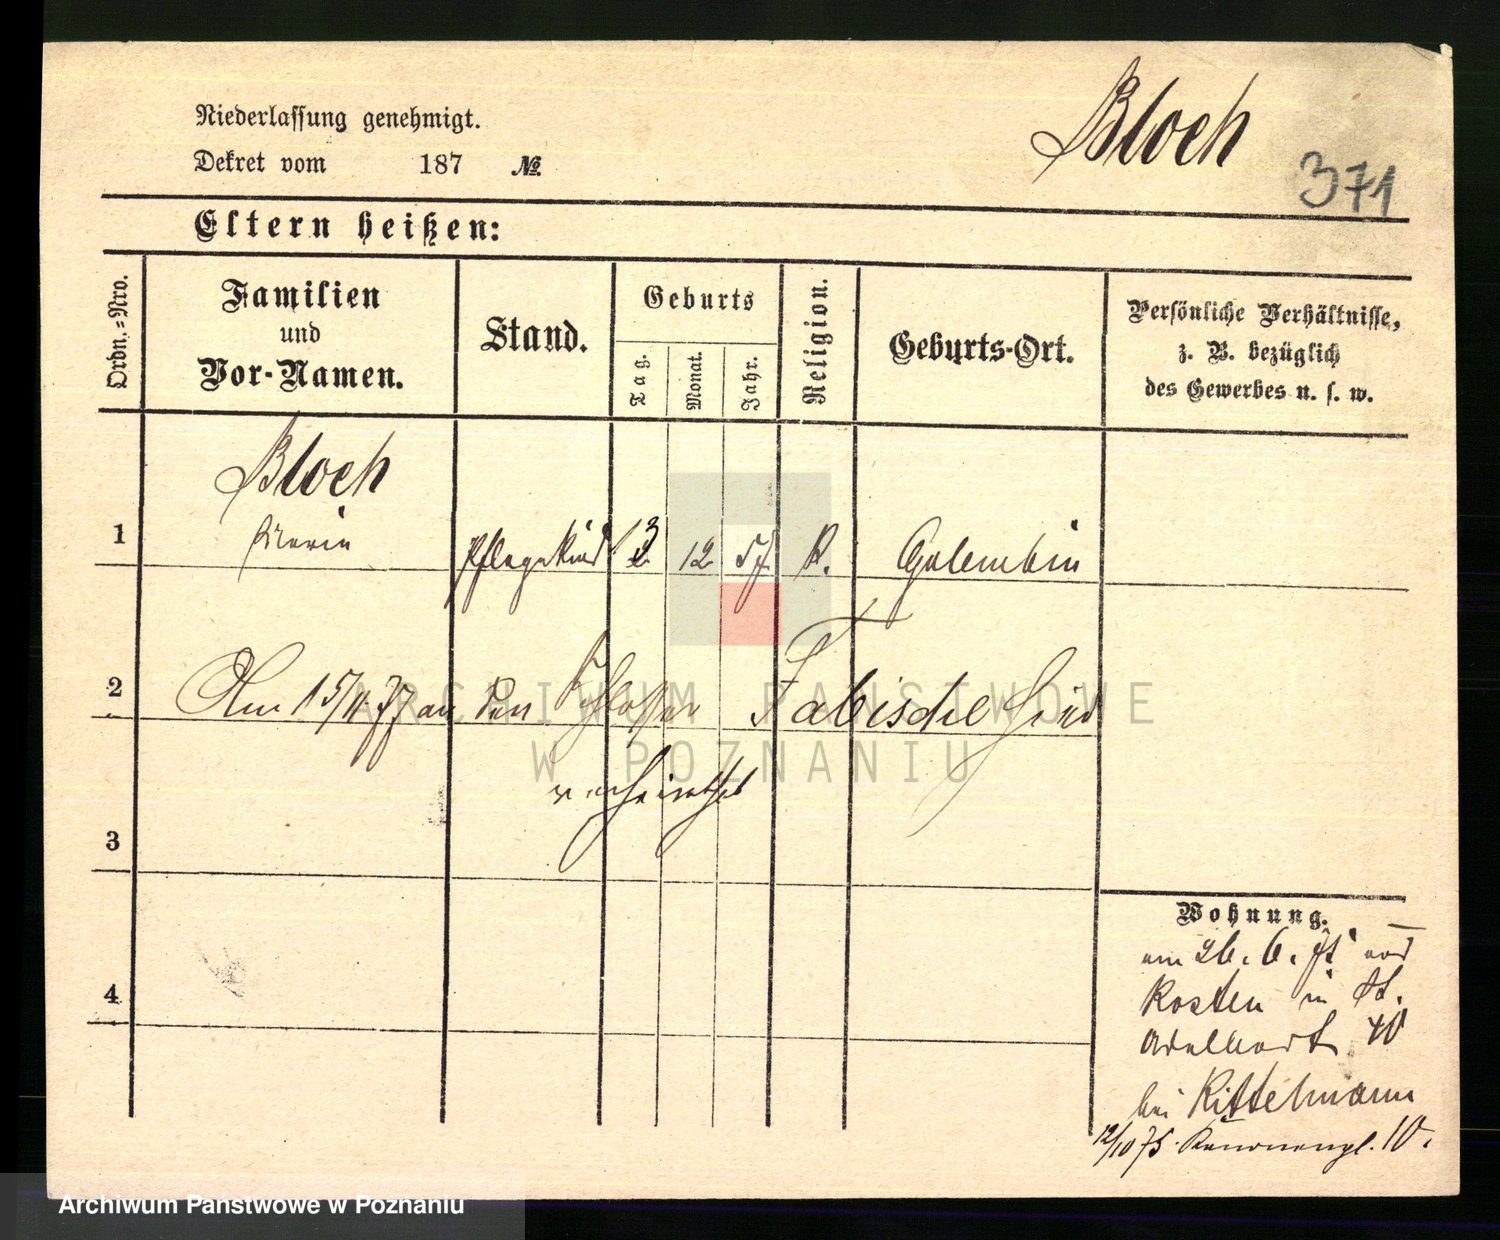 Niederlassung genehmigt.
Bloch
Dekret vom 187 №
371
Eltern heißen:
Ordn.=Nro.
Familien
und
Vor-Namen.
Stand.
Geburts
Tag.
Monat.
Jahr.
Religion.
Geburts-Ort.
Persönliche Verhältnisse,
z. B. bezüglich
des Gewerbes u. s. w.
Bloch
1 Pflegekind 12 57 K. Golembin
2 Am 15/11.77 an den Schlosser Fabisch
verheirathet
3
4
Wohnung.
am 26. 6. aus
Kosten in St.
Adelbert 40
bei Kittelmann
12/10 75. Kanonenpl. 10.
ARCHIWUM PAŃSTWOWE
W POZNANIU
Archiwum Państwowe w Poznaniu